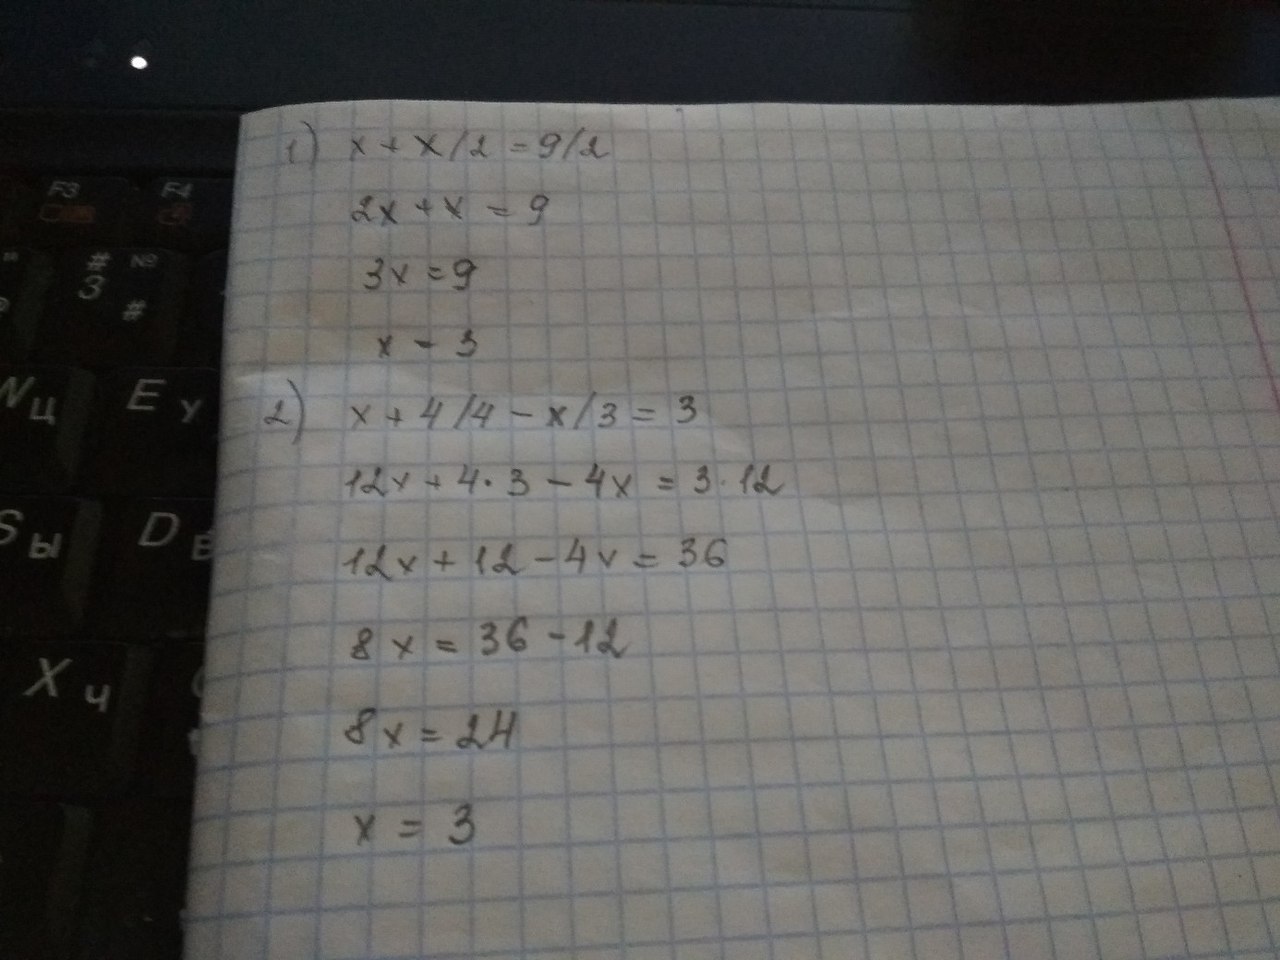 1) x + x/2 = 9/2
2x + x = 9
3x = 9
x - 3
2) x + 4/4 - x/3 = 3
12x + 4·3 - 4x = 3·12
12x + 12 - 4x = 36
8x = 36 - 12
8x = 24
x = 3
F3 F4
# №
3 #
W Ц E У
S Ы D
X Ч